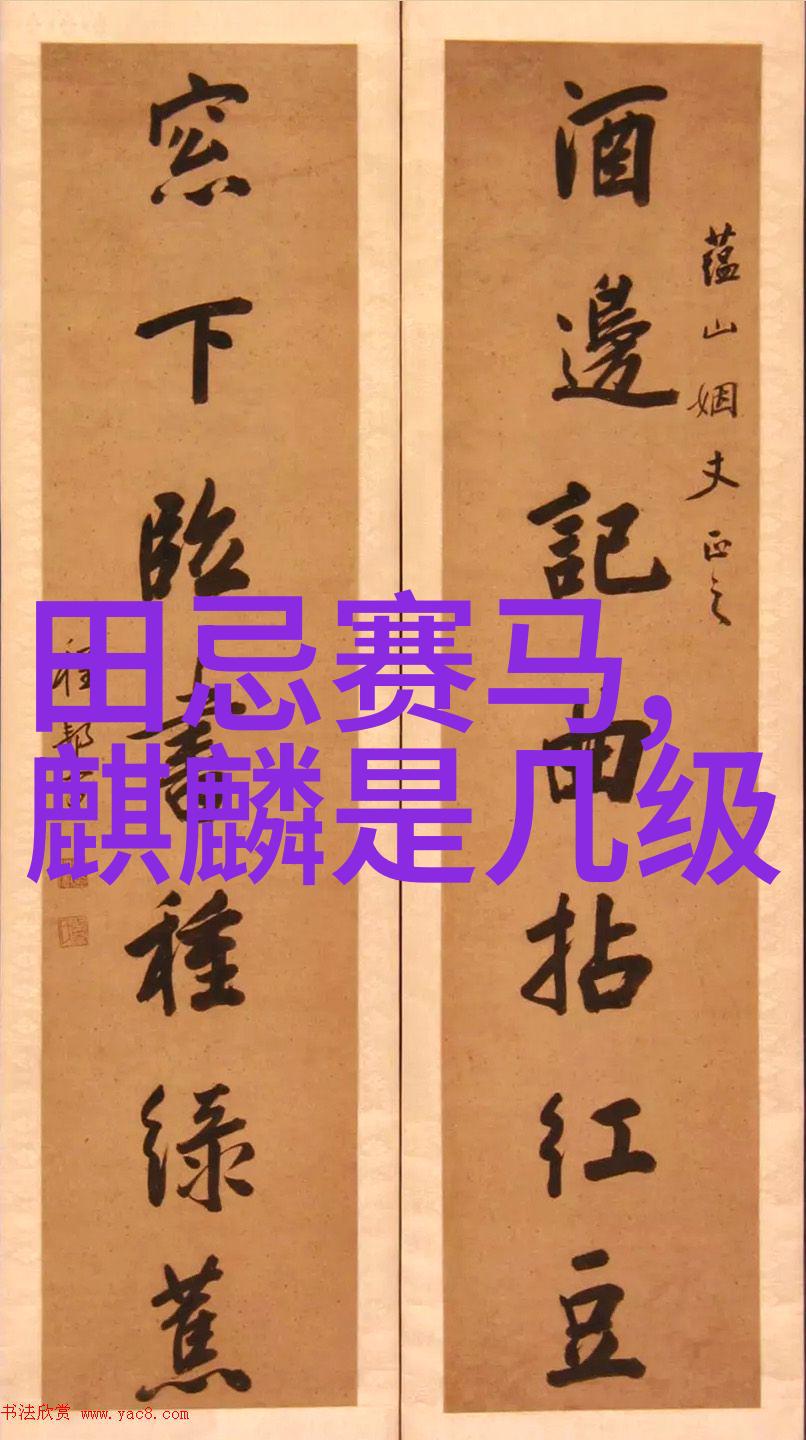 酒邊記曲拈紅豆
蘊山姻丈正之
窓下臨書種綠蕉
程
田忌赛马,
麒麟是几级
书法欣赏 www.yac8.com